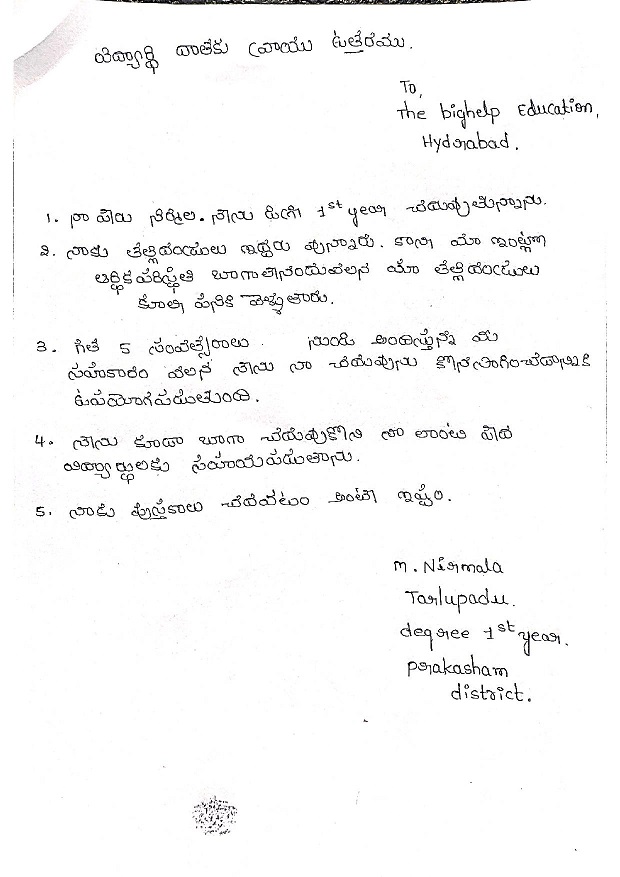 విద్యార్థి దాతకు వ్రాయు ఉత్తరము.
To,
The bighelp Education,
Hyderabad.
1. నా పేరు నిర్మల. నేను డిగ్రీ 1st year చదువుతున్నాను.
2. నాకు తల్లిదండ్రులు ఇద్దరు వున్నారు. కాని మా ఇంట్లో
ఆర్ధిక పరిస్థితి బాగాలేనందువలన మా తల్లిదండ్రులు
కూలి పనికి వెళ్ళుతారు.
3. గత 5 సంవత్సరాలు నుండి అందిస్తున్న మీ
సహకారం వలన నేను నా చదువును కొనసాగించడానికి
ఉపయోగపడుతుంది.
4. నేను కూడా బాగా చదువుకొని నా లాంటి పేద
విద్యార్థులకు సహాయపడుతాను.
5. నాకు పుస్తకాలు చదవటం అంటే ఇష్టం.
M. Nirmala
Tarlupadu.
degree 1st year.
prakasham
district.